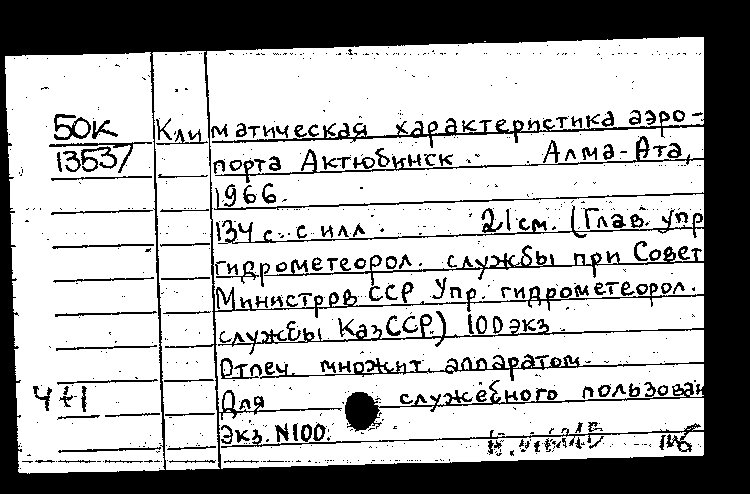 50К Климатическая характеристика аэро-
13537 порта Актюбинск. Алма-Ата,
1966.
134 с. с илл. 21 см. (Глав. упр
гидрометеорол. службы при Совет
Министров ССР. Упр. гидрометеорол.
службы КазССР.) 100 экз.
Отпеч. множит. аппаратом.
Для служебного пользован
Экз. N100.